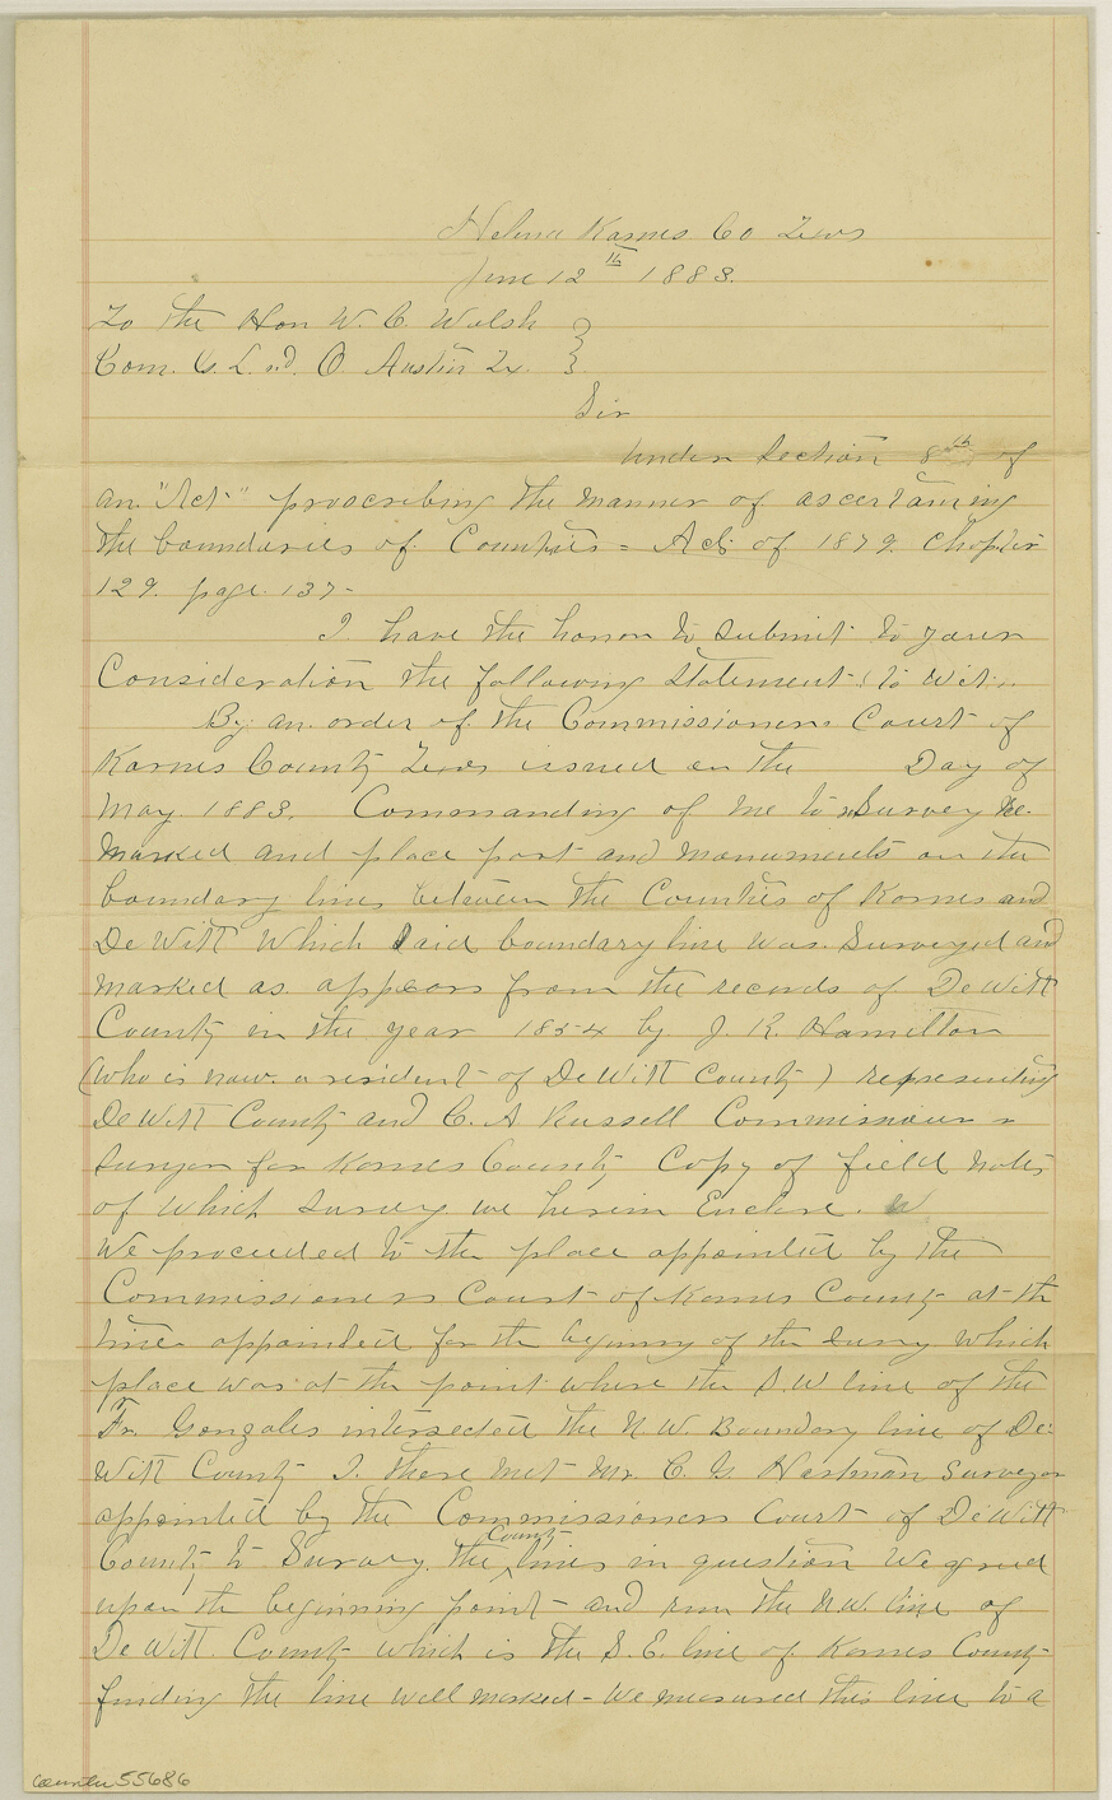 Helena Karnes Co Texas
June 12th 1883.
To the Hon W. C. Walsh
Com. G. L. O. Austin Tx.
Sir
Under Section 8th of
an "Act" proscribing the manner of ascertaining
the boundaries of Counties = Acts of 1879. Chapter
129. page. 137-
I have the honor to submit to your
Consideration the following Statement: to wit:
By an order of the Commissioners Court of
Karnes County Texas issued on the Day of
May 1883. Commanding of me to Survey Re-
marked and place post and monuments on the
boundary lines between the Counties of Karnes and
De Witt Which Said boundary line was Surveyed and
marked as appears from the records of DeWitt
County in the year 1854 by J. R. Hamilton
(who is now a resident of DeWitt County) representing
DeWitt County and C. A. Russell Commissioner
Suryor for Karnes County Copy of field notes
of which survey we herein Enclose.
We proceeded to the place appointed by the
Commissioners Court of Karnes County at the
time appointed for the begining of the Survy which
place was at the point where the S.W line of the
Fr. Gonzales intersected the N. W. Boundary line of De-
Witt County I. there met Mr. C. G. Hartman Surveyor
appointed by the Commissioners Court of DeWitt
County to Survey. the County lines in question We agreed
upon the beginning point - and run the N.W. line of
DeWitt County which is the S. E. line of Karnes County
finding the line well marked - We measured this line to a
counter 55686